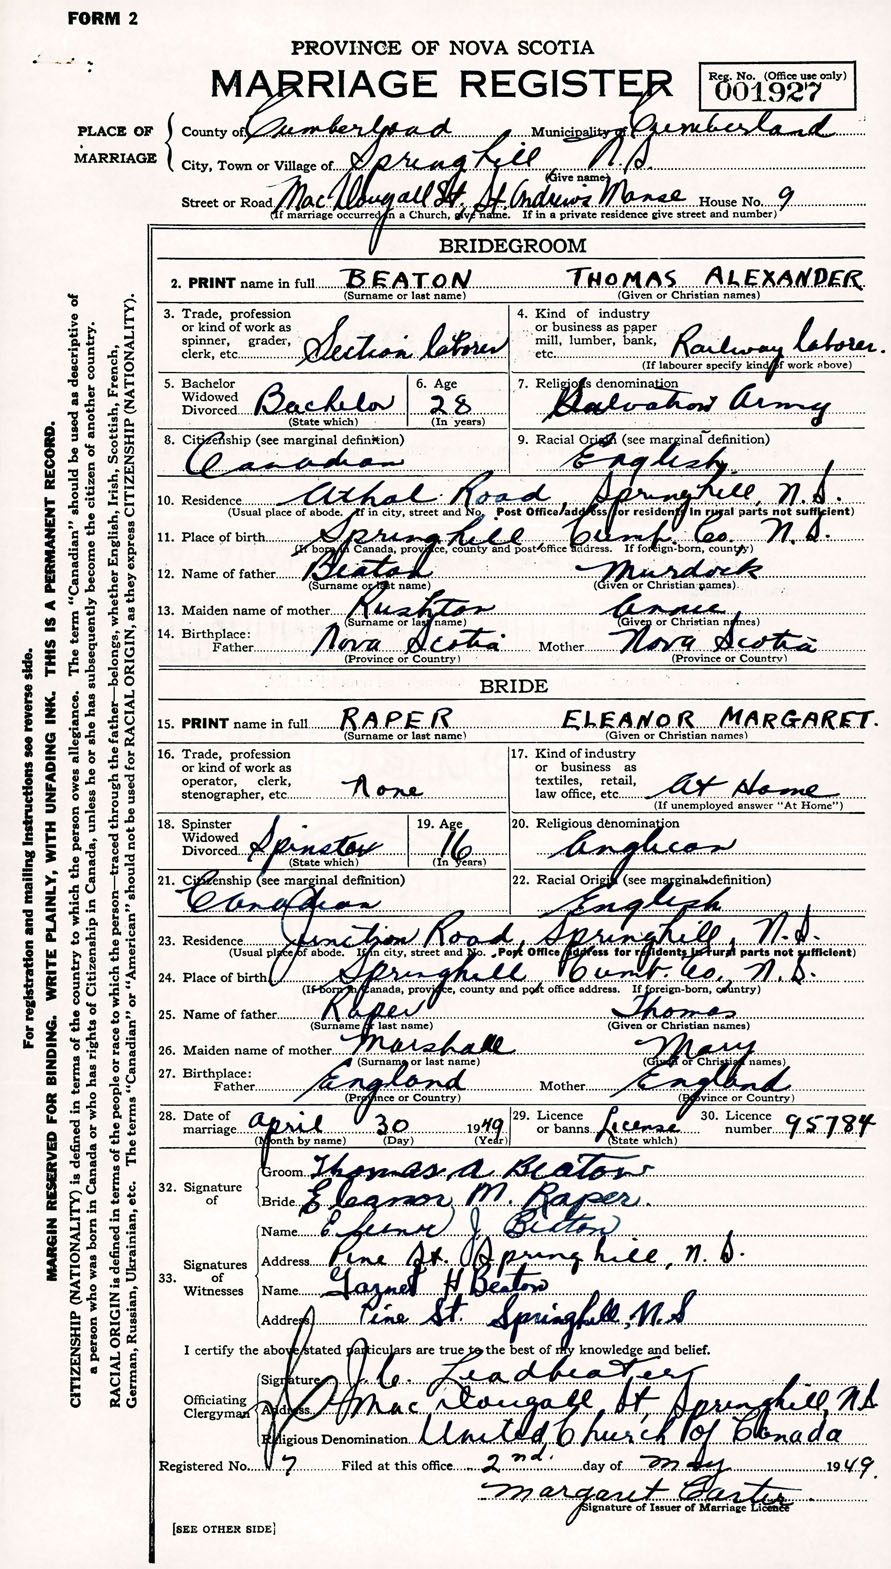 FORM 2
PROVINCE OF NOVA SCOTIA
MARRIAGE REGISTER
Reg. No. (Office use only)
001927
PLACE OF MARRIAGE
County of Cumberland Municipality of Cumberland
City, Town or Village of Springhill, N.S.
(Give name)
Street or Road MacDougall St, St. Andrews Manse House No. 9
(If marriage occurred in a Church, give name. If in a private residence give street and number)
BRIDEGROOM
2. PRINT name in full BEATON THOMAS ALEXANDER
(Surname or last name) (Given or Christian names)
3. Trade, profession or kind of work as spinner, grader, clerk, etc. Section laborer
4. Kind of industry or business as paper mill, lumber, bank, etc. Railway laborer.
(If labourer specify kind of work above)
5. Bachelor Widowed Divorced Bachelor
(State which)
6. Age 28
(In years)
7. Religious denomination Salvation Army
8. Citizenship (see marginal definition) Canadian
9. Racial Origin (see marginal definition) English
10. Residence Athol Road, Springhill, N.S.
(Usual place of abode. If in city, street and No. Post Office address for residents in rural parts not sufficient)
11. Place of birth Springhill, Cumb. Co. N.S.
(If born in Canada, province, county and post office address. If foreign-born, country)
12. Name of father Beaton Murdock
(Surname or last name) (Given or Christian names)
13. Maiden name of mother Rushton Annie
(Surname or last name) (Given or Christian names)
14. Birthplace: Father Nova Scotia Mother Nova Scotia
(Province or Country) (Province or Country)
BRIDE
15. PRINT name in full RAPER ELEANOR MARGARET.
(Surname or last name) (Given or Christian names)
16. Trade, profession or kind of work as operator, clerk, stenographer, etc. None
17. Kind of industry or business as textiles, retail, law office, etc. At Home
(If unemployed answer "At Home")
18. Spinster Widowed Divorced Spinster
(State which)
19. Age 16
(In years)
20. Religious denomination Anglican
21. Citizenship (see marginal definition) Canadian
22. Racial Origin (see marginal definition) English
23. Residence Junction Road, Springhill, N.S.
(Usual place of abode. If in city, street and No. Post Office address for residents in rural parts not sufficient)
24. Place of birth Springhill Cumb. Co, N.S.
(If born in Canada, province, county and post office address. If foreign-born, country)
25. Name of father Raper Thomas
(Surname or last name) (Given or Christian names)
26. Maiden name of mother Marshall Mary
(Surname or last name) (Given or Christian names)
27. Birthplace: Father England Mother England
(Province or Country) (Province or Country)
28. Date of marriage April 30 1949
(Month by name) (Day) (Year)
29. Licence or banns License
(State which)
30. Licence number 95784
32. Signature of
Groom Thomas A Beaton
Bride Eleanor M. Raper.
33. Signatures of Witnesses
Name J Beaton
Address Pine St. Springhill, N.S.
Name Garnet H Beaton
Address Pine St. Springhill, N.S
I certify the above stated particulars are true to the best of my knowledge and belief.
Officiating Clergyman
Signature J.C. Leadbeater
Address MacDougall St Springhill, N.S
Religious Denomination United Church of Canada
Registered No. 7 Filed at this office 2nd. day of May 1949.
Margaret Carter
Signature of Issuer of Marriage Licence
[SEE OTHER SIDE]
For registration and mailing instructions see reverse side.
MARGIN RESERVED FOR BINDING. WRITE PLAINLY, WITH UNFADING INK. THIS IS A PERMANENT RECORD.
CITIZENSHIP (NATIONALITY) is defined in terms of the country to which the person owes allegiance. The term "Canadian" should be used as descriptive of
a person who was born in Canada or who has rights of Citizenship in Canada, unless he or she has subsequently become the citizen of another country.
RACIAL ORIGIN is defined in terms of the people or race to which the person—traced through the father—belongs, whether English, Irish, Scottish, French,
German, Russian, Ukrainian, etc. The terms "Canadian" or "American" should not be used for RACIAL ORIGIN, as they express CITIZENSHIP (NATIONALITY).